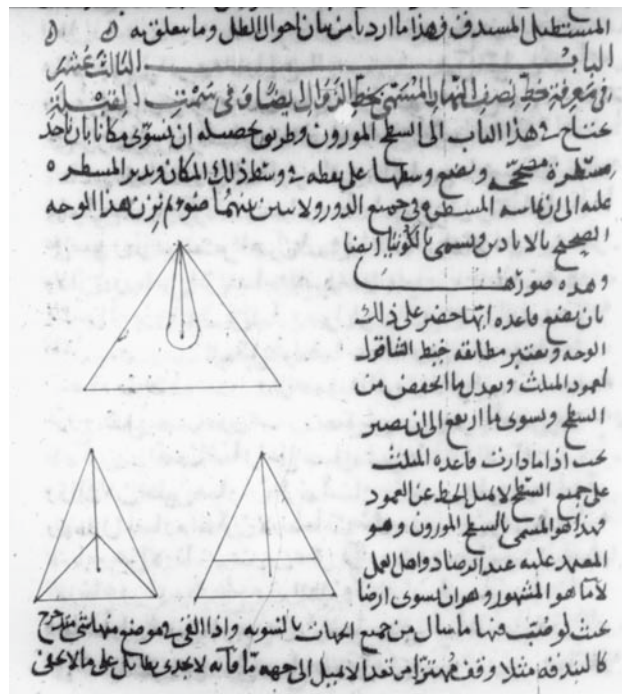 المستطيل المستدق فهذا ما اردنا من بيان احوال الظل وما يتعلق به
الباب الثالث عشر
في معرفة خط نصف النهار المسمى بخط الزوال ايضا وفي سمت القبلة
يحتاج في هذا الباب الى السطح الموزون وطريق تحصيله ان يسوى مكانا بان تاخذ
مسطرة مصححة ونضع وسطها على نقطة في وسط ذلك المكان وندير المسطرة
عليه الى ان تماسه المسطرة في جميع الدور ولا يبين بينهما ضوء ثم نزن هذا الوجه
الصحيح بالافادين ويسمى بالكونيا ايضا
هذه صورتها
بان نضع قاعدة ابتها حضر على ذلك
الوجه ونعتبر مطابقة خيط الشاقول
لعمود المثلث ونعدل ما انخفض من
السطح ونسوى ما ارتفع الى ان يصير
بحيث اذا ما دارت قاعدة المثلث
على جميع السطح لا يميل الخط عن العمود
فهذا هو المسمى بالسطح الموزون وهو
المعتمد عليه عند الرصاد واهل العمل
لا ما هو المشهور وهو ان يسوى ارضا
بحيث لو صب فيها ماء سال من جميع الجهات بالتسوية واذا القي في موضع منها شيء متدحرج
كالبندقة مثلا وقف مهتزا من تعدا لا يميل الى جهة ما فانه لا يجدى بطائل على ما لا يخفى